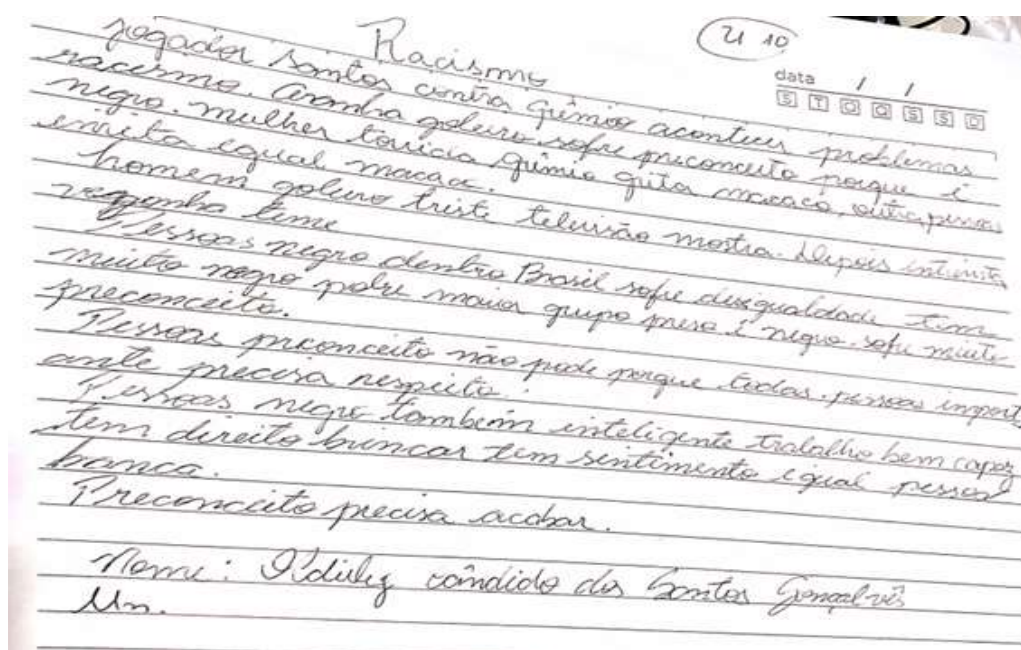 U 10
Racismo
data / /
S T Q Q S S D
jogador Santos contra Grêmio aconteceu problemas
racismo. Aranha goleiro sofre preconceito porque é
negro. mulher torcida grêmio grita macaco, outra pessoa
imita igual macaco.
homem goleiro triste televisão mostra. Depois
vergonha time
Pessoas negro dentro Brasil sofre desigualdade tem
muito negro pobre maior grupo preso é negro. sofre muito
preconceito.
Pessoas preconceito não pode porque todas pessoas import
ante precisa respeito.
Pessoas negro também inteligente trabalho bem capaz
tem direito brincar tem sentimento igual pessoa
branca.
Preconceito precisa acabar.
Nome: cândido dos Santos Gonçalvês